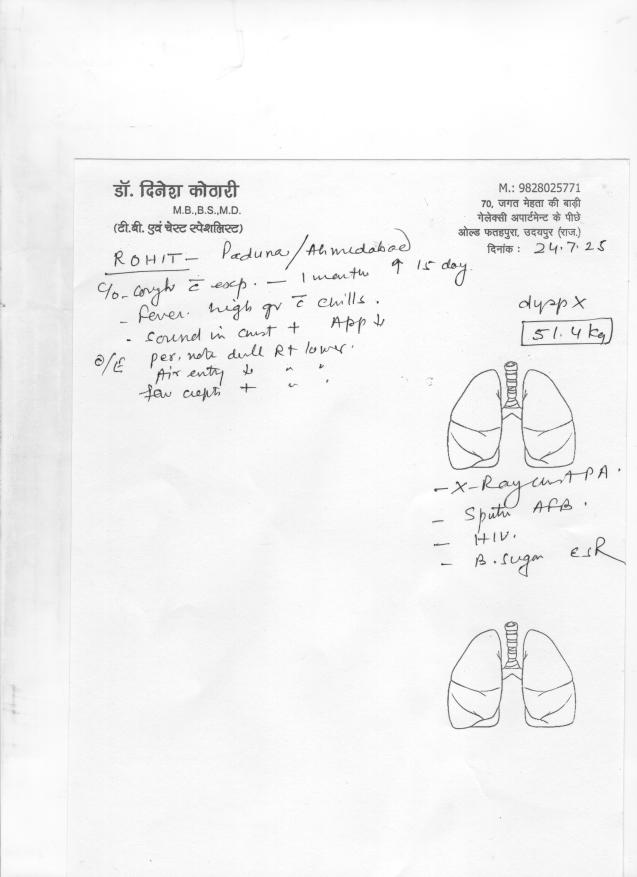 डॉ. दिनेश कोठारी
M.B.,B.S.,M.D.
(टी.बी. एवं चेस्ट स्पेशलिस्ट)
M.: 9828025771
70, जगत मेहता की बाड़ी
गेलेक्सी अपार्टमेन्ट के पीछे
ओल्ड फतहपुरा, उदयपुर (राज.)
दिनांक : 24.7.25
ROHIT - Paduna/Ahmedabad
C/o - cough c̄ exp. - 1 month ↑ 15 day
- fever. high gr c̄ chills.
- sound in chest + App ↓
O/E per. note dull Rt lower.
Air entry ↓ " "
few crepts + " "
dysp X
51.4 kg
- X-Ray chest PA.
- Sputm AFB.
- HIV.
- B. Sugar ESR